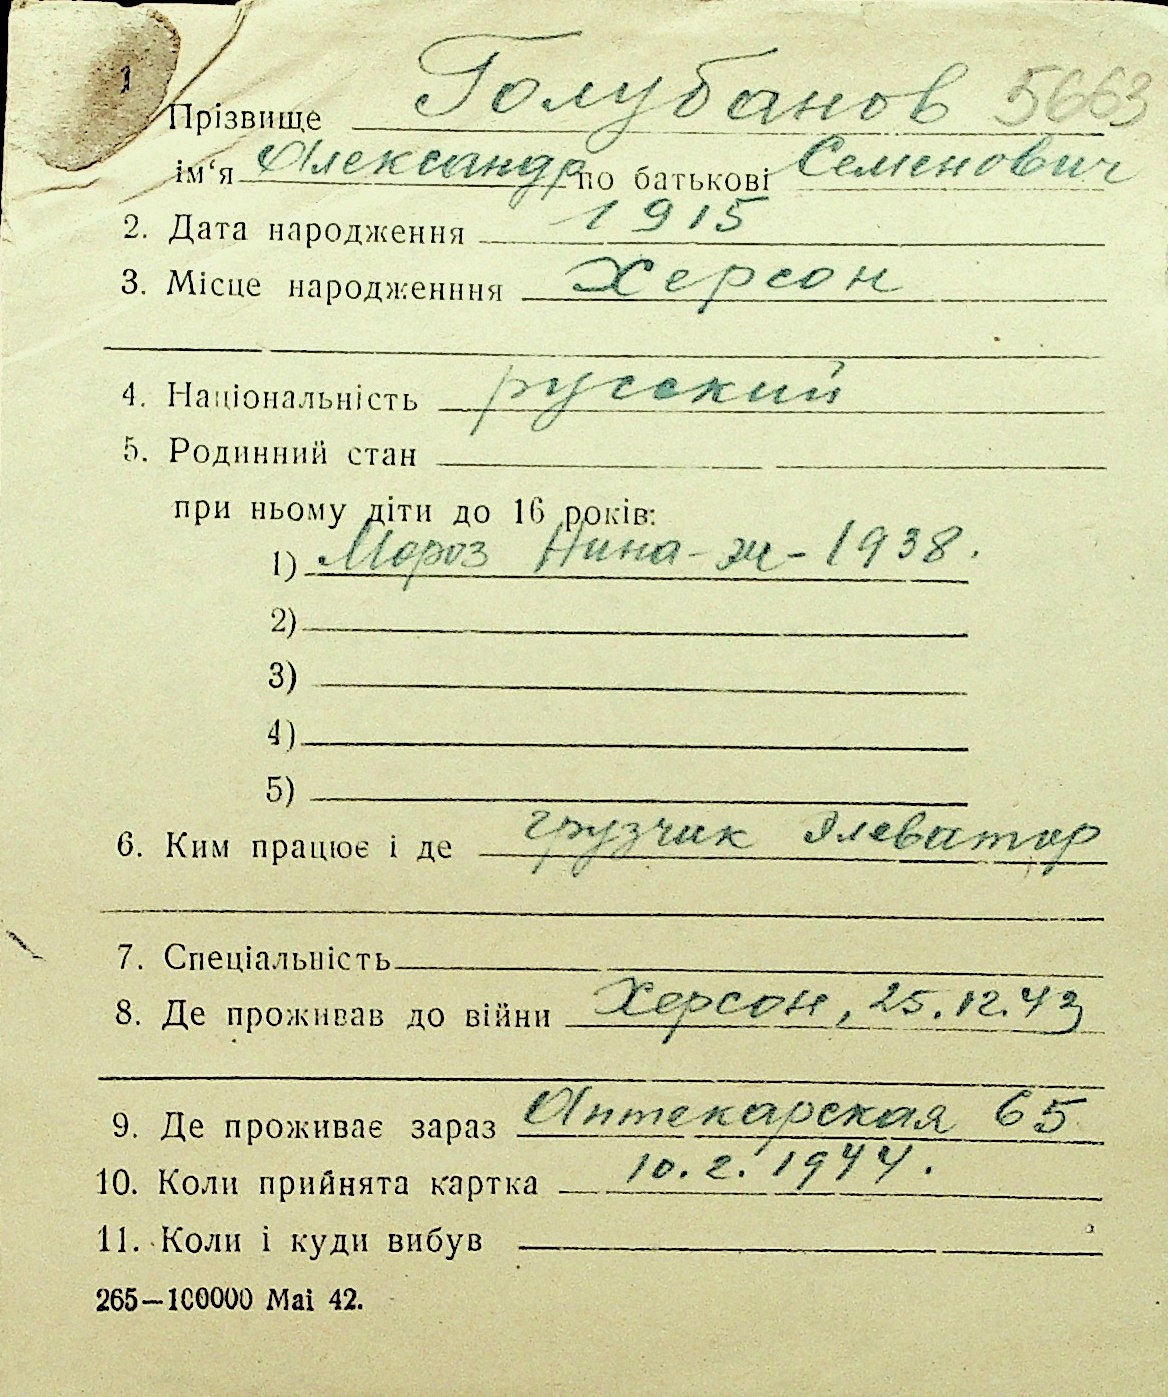 1
Прізвище Голубанов 5663
ім‘я Александр по батькові Семенович
2. Дата народження 1915
3. Місце народженння Херсон
4. Національність русский
5. Родинний стан
при ньому діти до 16 років:
1) Мороз Нина - ж - 1938.
2)
3)
4)
5)
6. Ким працює і де грузчик Элеватор
7. Спеціальність
8. Де проживав до війни Херсон, 25.12.43
9. Де проживає зараз Аптекарская 65
10. Коли прийнята картка 10.2.1944.
11. Коли і куди вибув
265—100000 Mai 42.